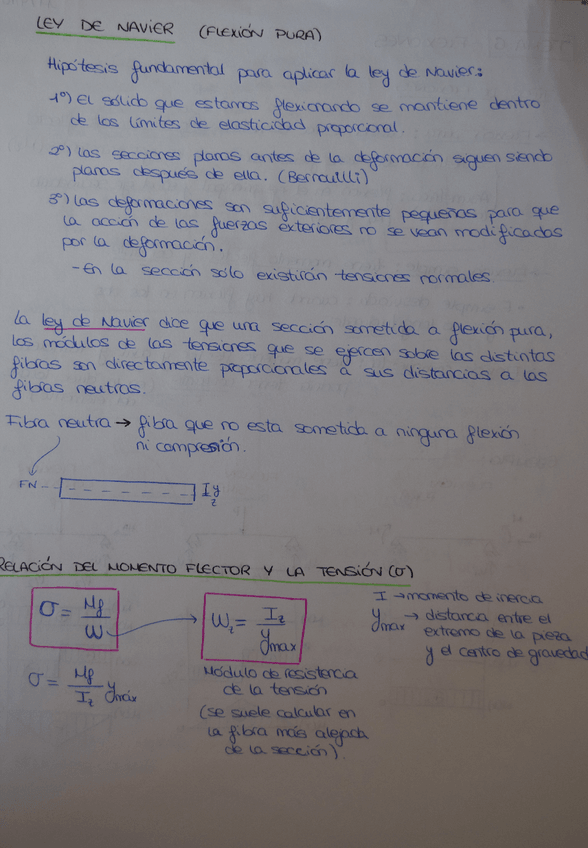 LEY DE NAVIER (FLEXIÓN PURA)
Hipótesis fundamental para aplicar la ley de Navier:
1º) El sólido que estamos flexionando se mantiene dentro
de los límites de elasticidad proporcional.
2º) Las secciones planas antes de la deformación siguen siendo
planas después de ella. (Bernaulli)
3º) Las deformaciones son suficientemente pequeñas para que
la acción de las fuerzas exteriores no se vean modificadas
por la deformación.
- En la sección sólo existirán tensiones normales.
La ley de Navier dice que una sección sometida a flexión pura,
los módulos de las tensiones que se ejercen sobre las distintas
fibras son directamente proporcionales a sus distancias a las
fibras neutras.
Fibra neutra → fibra que no esta sometida a ninguna flexión
ni compresión.
FN
I y
z
RELACIÓN DEL MOMENTO FLECTOR Y LA TENSIÓN (σ)
σ = Mf / W
Wz = Iz / ymax
I → momento de inercia
ymax → distancia entre el
extremo de la pieza
y el centro de gravedad
σ = Mf / Iz ymáx
Módulo de resistencia
de la tensión
(se suele calcular en
la fibra más alejada
de la sección).